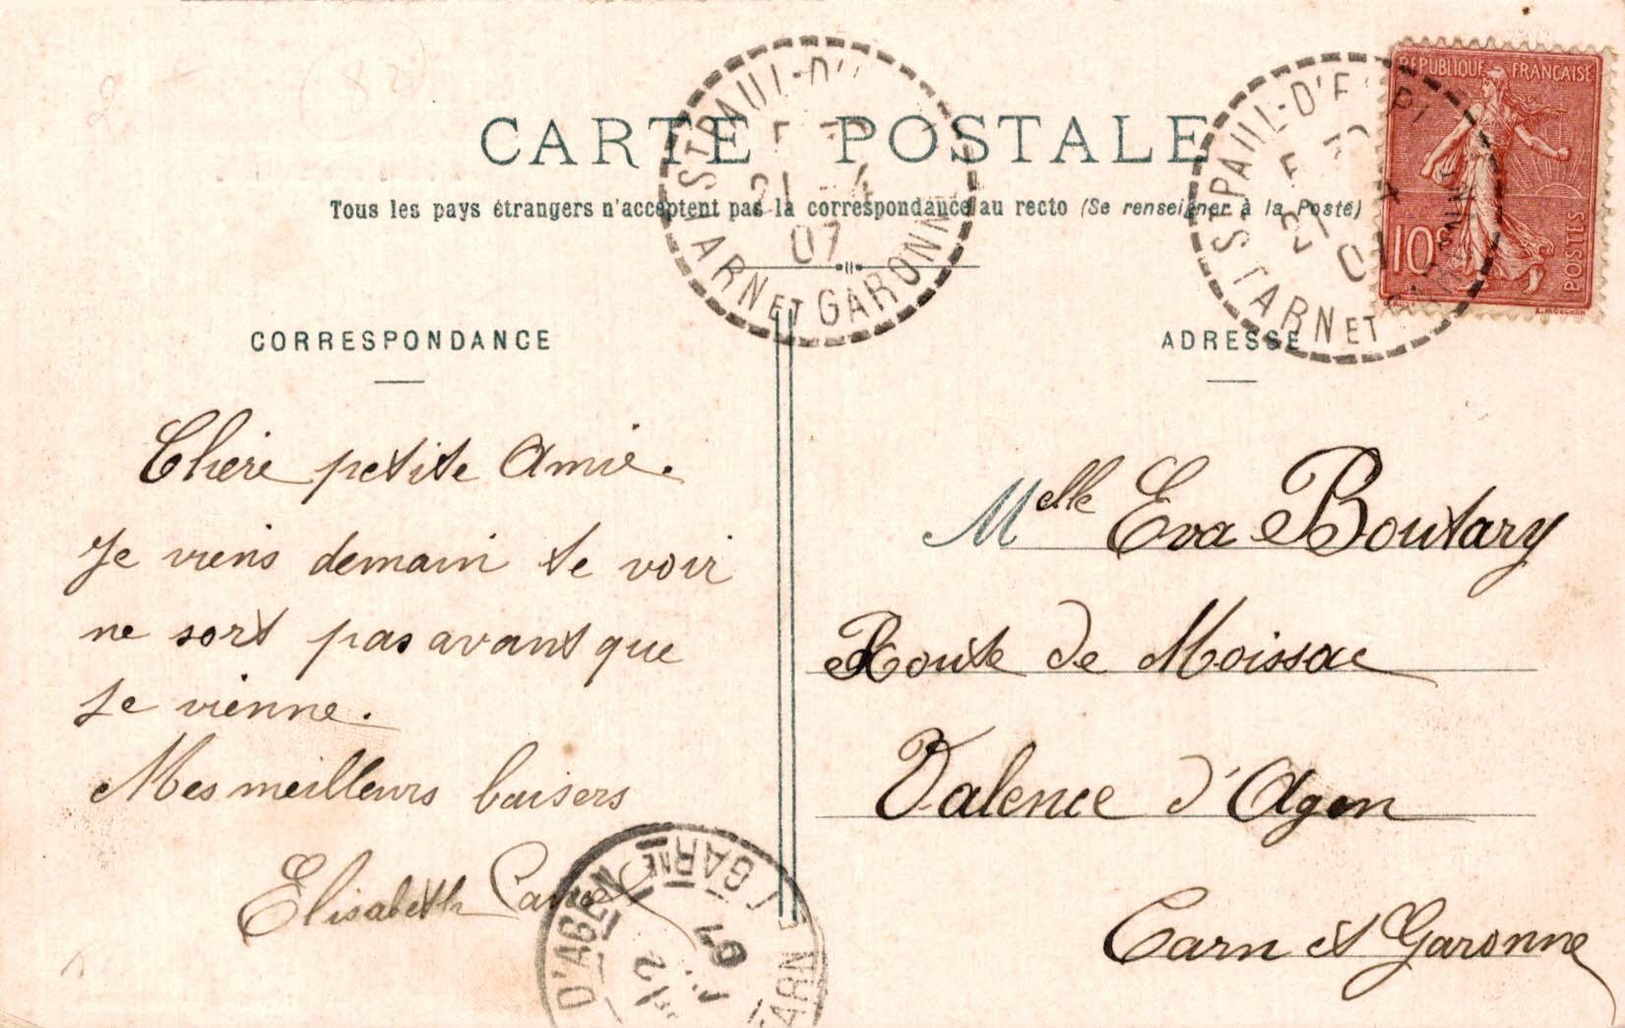 CARTE POSTALE
Tous les pays étrangers n'acceptent pas la correspondance au recto (Se renseigner à la Poste)
ST PAUL-D'
21 - 4
07
TARN ET GARONN
ST PAUL-D'
21
TARN ET
RÉPUBLIQUE FRANÇAISE
10c
POSTES
CORRESPONDANCE
Chère petite Amie.
Je viens demain te voir
ne sort pas avant que
je vienne.
Mes meilleurs baisers
Elisabeth
ADRESSE
Melle Eva Boutary
Route de Moissac
Valence d'Agen
Tarn et Garonne
D'AGEN
(TARN
GARNE
07
(82)
2